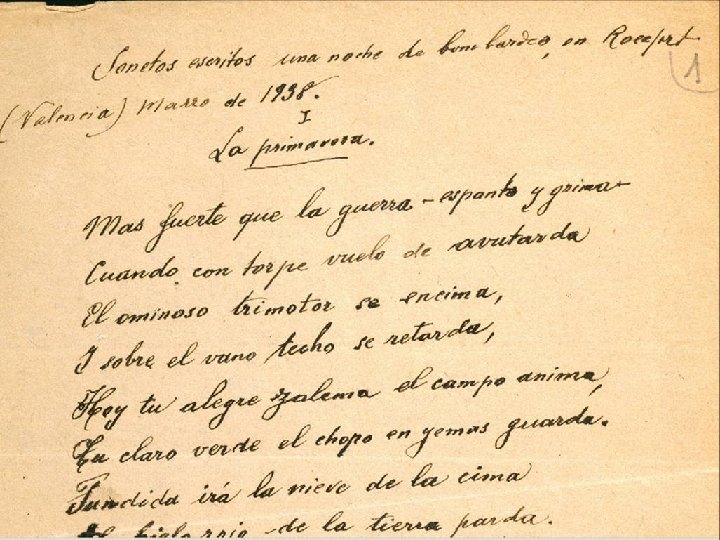 Sonetos escritos una noche de bombardeo, en Rocafort
1
(Valencia) Marzo de 1938.
I
La primavera.
Mas fuerte que la guerra – espanto y grima –
Cuando con torpe vuelo de avutarda
El ominoso trimotor se encima,
I sobre el vano techo se retarda,
Hoy tu alegre zalema el campo anima,
Tu claro verde el chopo en yemas guarda.
Fundida irá la nieve de la cima
Al hielo rojo de la tierra parda.